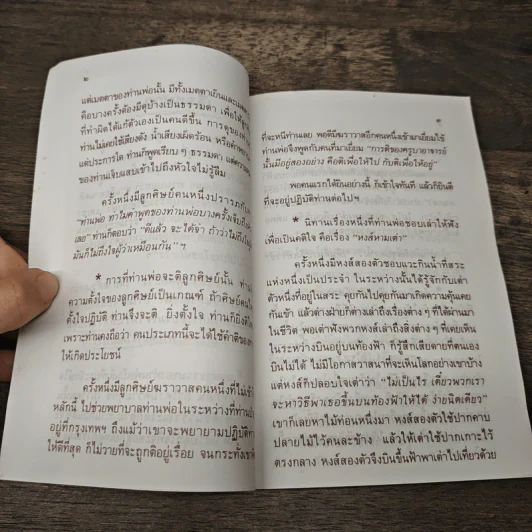 ๒
แต่เมตตาของท่านพ่อนั้น มีทั้งเมตตาเย็นและเมตตา
คือบางครั้งต้องมีดุบ้างเป็นธรรมดา เพื่อให้
ที่ทำผิดได้แก้ตัวเองเป็นคนดีขึ้น การดุของท่าน
ท่านไม่เคยใช้เสียงดัง น้ำเสียงเผ็ดร้อน หรือคำหยาบ
แต่ประการใด ท่านก็พูดเรียบ ๆ ธรรมดา แต่ความ
ของท่านจึงแสบเข้าไปถึงหัวใจไม่รู้ลืม
ครั้งหนึ่งมีลูกศิษย์คนหนึ่งปรารภกับ
"ท่านพ่อ ทำไมคำพูดของท่านพ่อบางครั้งเจ็บถึง
เลย" ท่านก็ตอบว่า "ดีแล้ว จะได้จำ ถ้าว่าไม่ถึงใจ
มันก็ไม่ถึงใจผู้ว่าเหมือนกัน" ฯ
* การที่ท่านพ่อจะติลูกศิษย์นั้น ท่าน
ความตั้งใจของลูกศิษย์เป็นเกณฑ์ ถ้าศิษย์คน
ตั้งใจปฏิบัติ ท่านจึงจะติ ยิ่งตั้งใจ ท่านก็ยิ่งติ
เพราะท่านคงถือว่า คนประเภทนี้จะได้ใช้คำติของ
ให้เกิดประโยชน์
ครั้งหนึ่งมีลูกศิษย์ฆราวาสคนหนึ่งที่ไม่เข้า
หลักนี้ ไปช่วยพยาบาลท่านพ่อในระหว่างที่ท่าน
อยู่ที่กรุงเทพฯ ถึงแม้ว่าเขาจะพยายามปฏิบัติ
ให้ดีที่สุด ก็ไม่วายที่จะถูกติอยู่เรื่อย จนกระทั่งเขา
๓
ที่จะหนีท่านเลย พอดีมีฆราวาสอีกคนหนึ่งเข้ามาเยี่ยมไข้
ท่านพ่อจึงพูดกับคนที่มาเยี่ยม "การติของครูบาอาจารย์
นั้นมีอยู่สองอย่าง คือติเพื่อให้ไป กับติเพื่อให้อยู่"
พอคนแรกได้ยินอย่างนี้ ก็เข้าใจทันที แล้วก็ยินดี
ที่จะอยู่ปฏิบัติท่านต่อไปฯ
* นิทานเรื่องหนึ่งที่ท่านพ่อชอบเล่าให้ฟัง
เพื่อเป็นคติใจ คือเรื่อง "หงส์หามเต่า"
ครั้งหนึ่งมีหงส์สองตัวชอบแวะกินน้ำที่สระ
แห่งหนึ่งเป็นประจำ ในระหว่างนั้นได้รู้จักกับเต่า
ตัวหนึ่งที่อยู่ในสระ คุยกันไปคุยกันมาเกิดความคุ้นเคย
กันเข้า แล้วต่างฝ่ายก็ต่างเล่าถึงเรื่องต่าง ๆ ที่ได้ผ่านมา
ในชีวิต พอเต่าฟังพวกหงส์เล่าถึงสิ่งต่าง ๆ ที่เคยเห็น
ในระหว่างบินอยู่บนท้องฟ้า ก็รู้สึกเสียดายที่ตนเอง
บินไม่ได้ ไม่มีโอกาสวาสนาที่จะเห็นโลกอย่างเขาบ้าง
แต่หงส์ก็ปลอบใจเต่าว่า "ไม่เป็นไร เดี๋ยวพวกเรา
จะหาวิธีพาเธอขึ้นบนท้องฟ้าให้ได้ ง่ายนิดเดียว"
เขาก็เลยหาไม้ท่อนหนึ่งมา หงส์สองตัวใช้ปากคาบ
ปลายไม้ไว้คนละข้าง แล้วให้เต่าใช้ปากเกาะไว้
ตรงกลาง หงส์สองตัวจึงบินขึ้นฟ้าพาเต่าไปเที่ยวด้วย